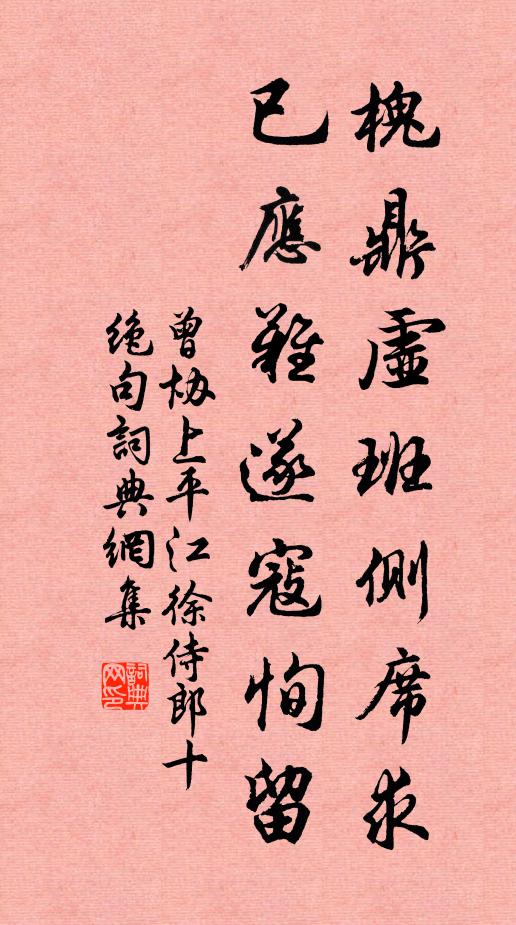 槐鼎虛班側席求
已應難遂寇恂留
曾協上平江徐侍郎十
絕句詞典網集
詞典网印